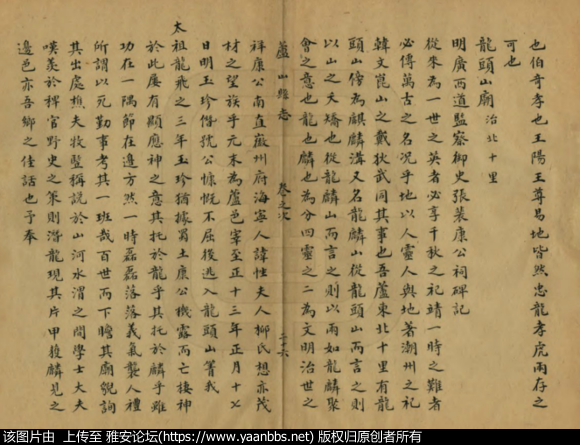 也伯奇孝也王陽王尊易地皆然忠龍孝虎兩存之
可也
龍頭山廟治北十里
明廣西道監察御史張裴康公祠碑記
從來為一世之英者必享千秋之祀靖一時之難者
必傳萬古之名况乎地以人靈人與地著潮州之祀
韓文崑山之戴狄武同其事也吾蘆東北十里有龍
頭山傍為麒麟溝又名龍麟山從龍頭山而言之則
以山之夭矯也從龍麟山而言之則以兩如龍麟聚
會之意也龍也麟也為分四靈之二為文明治世之
蘆山縣志
卷之次
二十六
祥康公南直徽州府海寧人諱性夫人柳氏想亦茂
材之望族乎元末為蘆邑宰至正十三年正月十七
日明玉珍僭號公慷慨不屈後逃入龍頭山箐我
太祖龍飛之三年玉珍猶據蜀土康公機露而亡棲神
於此屢有顯應神之意其托於龍乎其托於麟乎雖
功在一隅節在邊方然一時磊磊落落義氣襲人禮
所謂以死勤事考其一班哉百世而下瞻其廟貌詢
其出處樵夫牧豎稱説於山河水湄之間學士大夫
嘆羨於稗官野史之策則潛龍現其片甲獲麟見之
邊邑亦吾鄉之佳話也予奉
该图片由 上传至 雅安论坛(https://www.yaanbbs.net) 版权归原创者所有